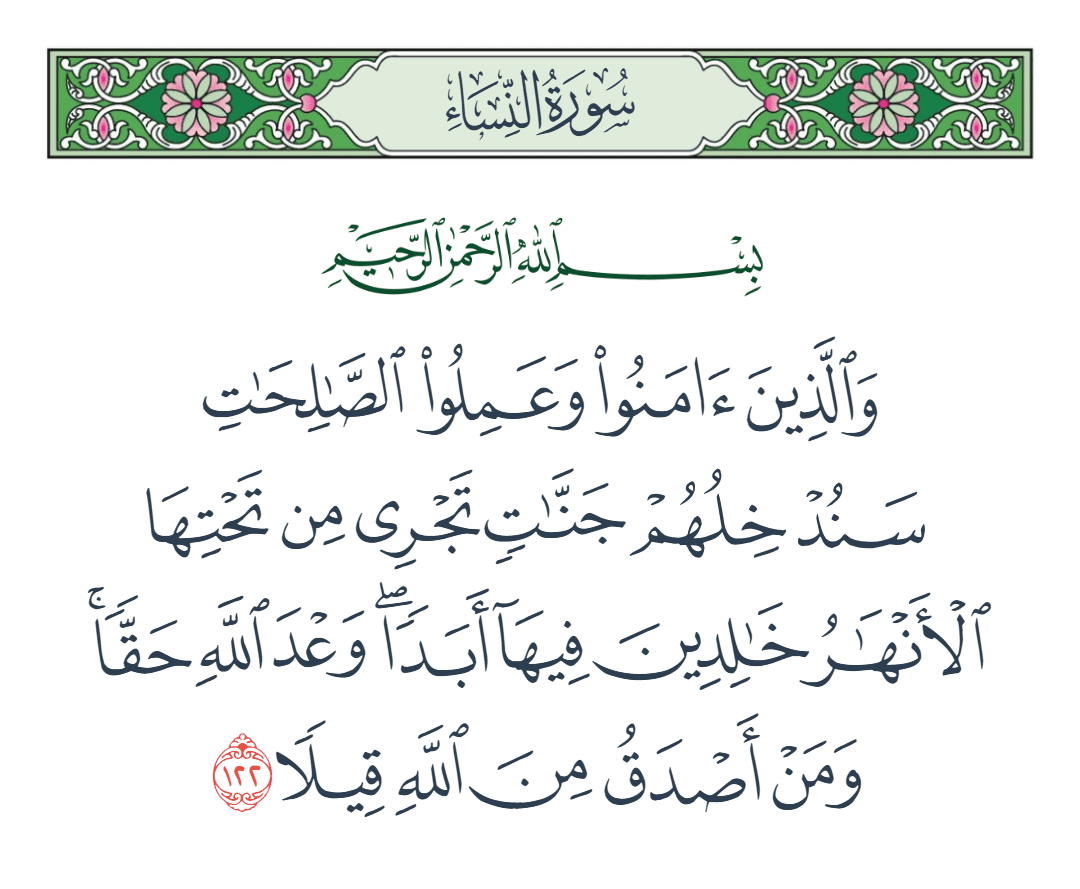 سُورَةُ النِّسَاءِ
بِسْمِ ٱللَّهِ ٱلرَّحْمَٰنِ ٱلرَّحِيمِ
وَٱلَّذِينَ ءَامَنُوا۟ وَعَمِلُوا۟ ٱلصَّـٰلِحَـٰتِ
سَنُدْخِلُهُمْ جَنَّـٰتٍۢ تَجْرِى مِن تَحْتِهَا
ٱلْأَنْهَـٰرُ خَـٰلِدِينَ فِيهَآ أَبَدًۭا ۖ وَعْدَ ٱللَّهِ حَقًّۭا ۚ
وَمَنْ أَصْدَقُ مِنَ ٱللَّهِ قِيلًۭا ١٢٢